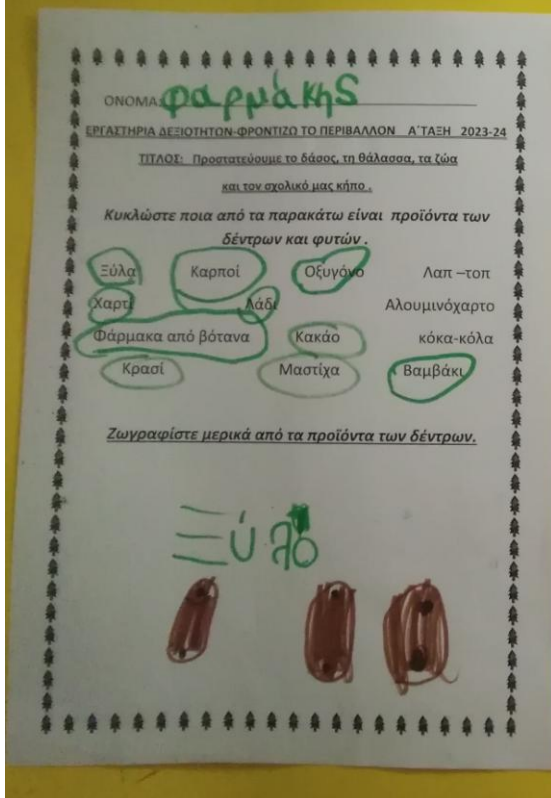 ΟΝΟΜΑ: φαρμάκης
ΕΡΓΑΣΤΗΡΙΑ ΔΕΞΙΟΤΗΤΩΝ-ΦΡΟΝΤΙΖΩ ΤΟ ΠΕΡΙΒΑΛΛΟΝ Α΄ΤΑΞΗ 2023-24
ΤΙΤΛΟΣ: Προστατεύουμε το δάσος, τη θάλασσα, τα ζώα
και τον σχολικό μας κήπο .
Κυκλώστε ποια από τα παρακάτω είναι προϊόντα των
δέντρων και φυτών .
Ξύλα Καρποί Οξυγόνο Λαπ –τοπ
Χαρτί Λάδι Αλουμινόχαρτο
Φάρμακα από βότανα Κακάο κόκα-κόλα
Κρασί Μαστίχα Βαμβάκι
Ζωγραφίστε μερικά από τα προϊόντα των δέντρων.
Ξύλο